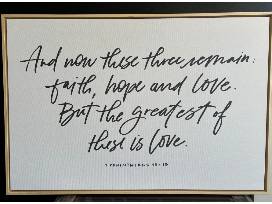 And now these three remain:
faith, hope and love.
But the greatest of
these is love.